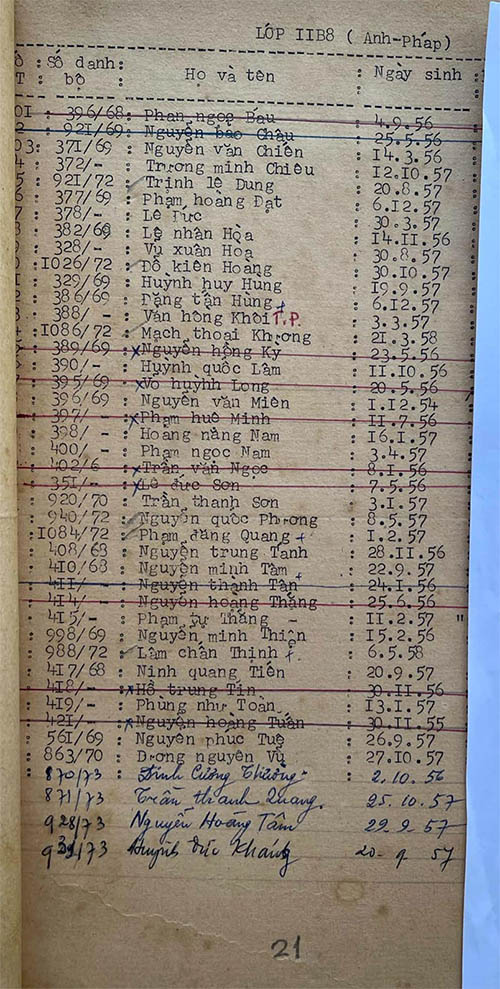 LỚP IIB8 ( Anh-Pháp)
Ố : Số danh: : Ngày sinh :
T : bộ : Họ và tên :
0I : 396/68: Phan ngọc Báu : 4.9.56
2 : 92I/69: Nguyễn bảo Châu : 25.5.56
03: 37I/69 : Nguyễn văn Chiến : I4.3.56
4 : 372/- : Trương minh Chiêu : I2.I0.57
5 : 92I/72 : Trịnh lê Dung : 20.8.57
6 : 377/69 : Phạm hoàng Đạt : 6.I2.57
7 : 378/- : Lê Đức : 30.3.57
8 : 382/69 : Lê nhân Hòa : I4.II.56
9 : 328/- : Vũ xuân Hoa : 30.8.57
0 : I026/72 : Đỗ kiên Hoang : 30.I0.57
I : 329/69 : Huỳnh huy Hùng : I9.9.57
2 : 386/69 : Đặng tấn Hùng + : 6.I2.57
3 : 388/- : Văn hồng Khôi T.P. : 3.3.57
4 : I086/72 : Mạch thoại Khương : 2I.3.58
5 : 389/69 : x Nguyễn hồng Kỳ : 23.5.56
: 390/- : Huỳnh quốc Lâm : II.I0.56
: 395/69 : x Võ huỳnh Long : 20.5.56
: 396/69 : Nguyễn văn Miên : I.I2.54
: 397/- : x Phạm huê Minh : II.7.56
: 398/- : Hoàng năng Nam : I6.I.57
: 400/- : Phạm ngọc Nam : 3.4.57
: 402/6 : x Trần văn Ngọc : 8.I.56
: 35I/- : x Lê đức Sơn : 7.5.56
: 920/70 : Trần thanh Sơn : 3.I.57
: 940/72 : Nguyễn quốc Phương : 8.5.57
: I084/72 : Phạm đăng Quang + : I.2.57
: 408/68 : Nguyễn trung Tanh : 28.II.56
: 4I0/68 : Nguyễn minh Tâm : 22.9.57
: 4II/- : Nguyễn thành Tân : 24.I.56
: 4I4/- : Nguyễn hoàng Thắng : 25.6.56
: 4I5/- : Phạm Thắng - : II.2.57 "
: 998/69 : Nguyễn minh Thiện : I5.2.56
: 988/72 : Lâm chấn Thịnh + : 6.5.58
: 4I7/68 : Ninh quang Tiến : 20.9.57
: 4I8/- : x Hồ trung Tín : 30.II.56
: 4I9/- : Phùng như Toàn : I3.I.57
: 42I/- : x Nguyễn hoàng Tuấn : 30.II.55
: 56I/69 : Nguyễn phúc Tuệ : 26.9.57
: 863/70 : Dương nguyên Vũ : 27.I0.57
: 870/73 : Đinh Cường Thương : 2.10.56
871/73 : Trần thanh Quang. 25.10.57
928/73 Nguyễn Hoàng Tâm 29.9.57
/73 Huỳnh Đức Kháng 20. 9 57
21